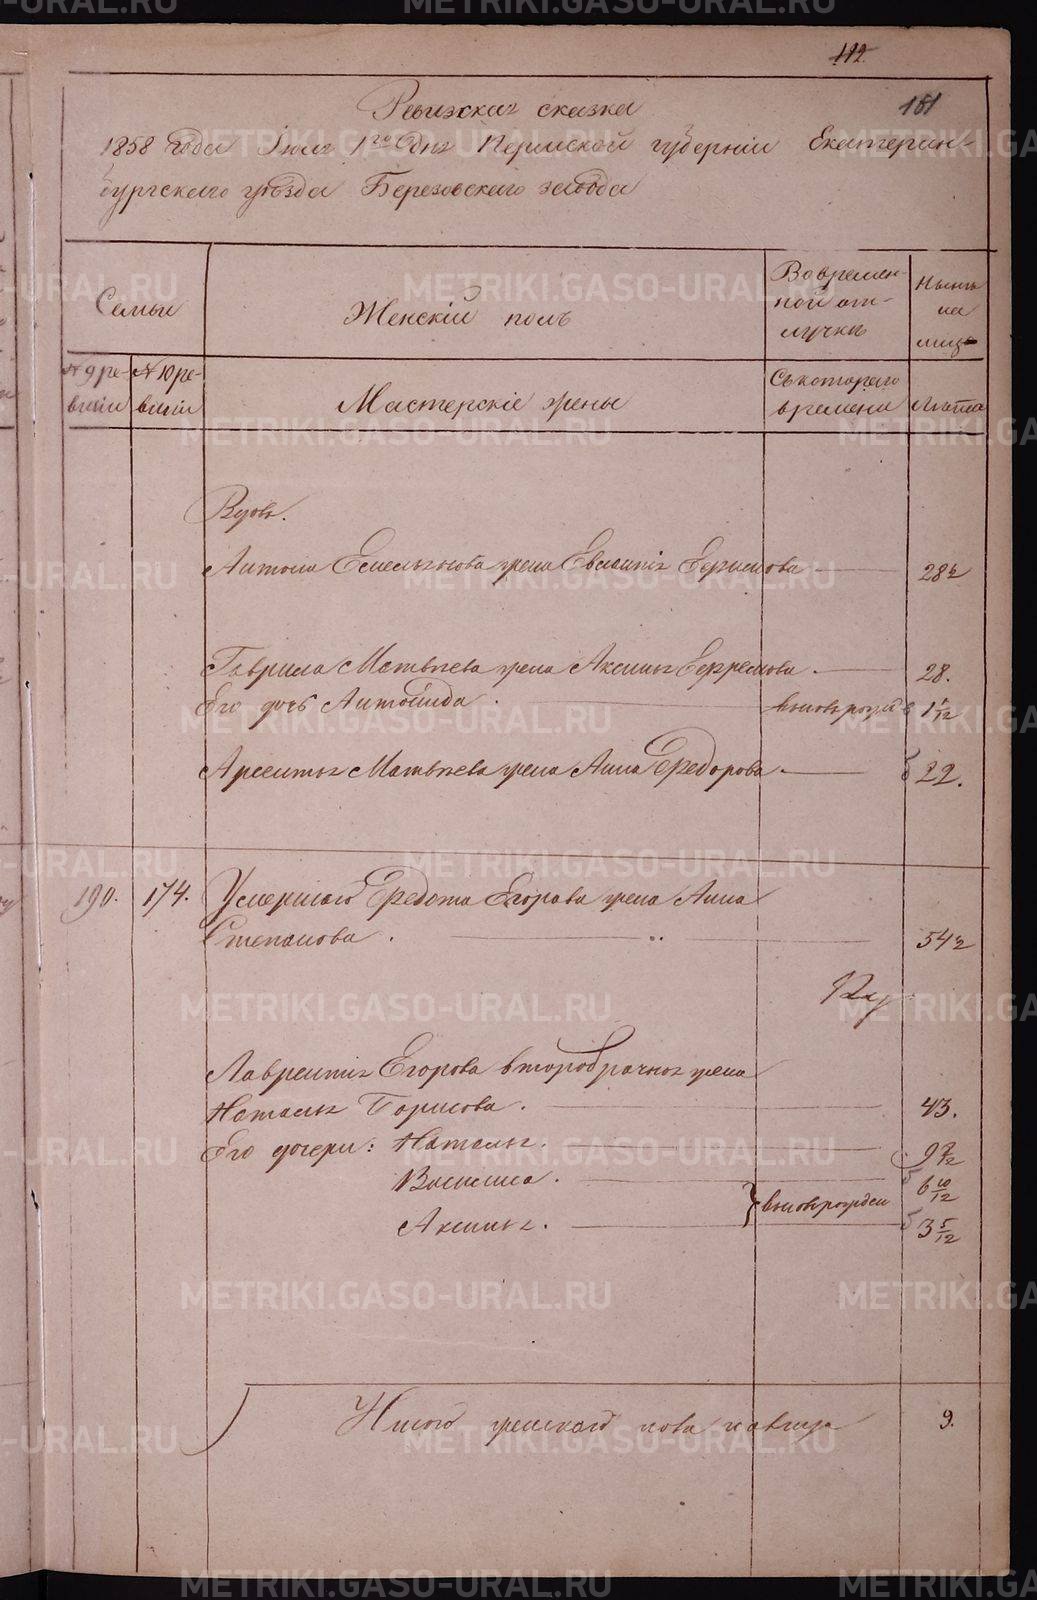 112.
181
Ревизская сказка
1858 года Июля 1го дня Пермской губернiи Екатерин-
бургскаго уѣзда Березовскаго завода
Семьи
Женскiй полъ
Во времен-
ной от-
лучкѣ
Нынѣ
на
лицо
№ 9 ре-
визiи
№ 10 ре-
визiи
Мастерскiе жены
Съ котораго
времени
Лѣта
Вдовъ.
Антона Емельянова жена Евгенiя 28½
Гаврила Матвѣева жена Аксинья Ефремова. 28.
Его дочь вновь рожд 1
Арсентья Матвѣева жена Анна Федорова. 22.
190. 174. Умершаго Федота Егорова жена Анна
Степанова. 54½
Лаврентiя Егорова второбрачная жена
Наталья Борисова. 43.
Его дочери: Наталья. 9
Василиса. 6 10/12
вновь рожден
Аксинья. 3 5/12
Итого женскаго пола 9.
METRIKI.GASO-URAL.RU